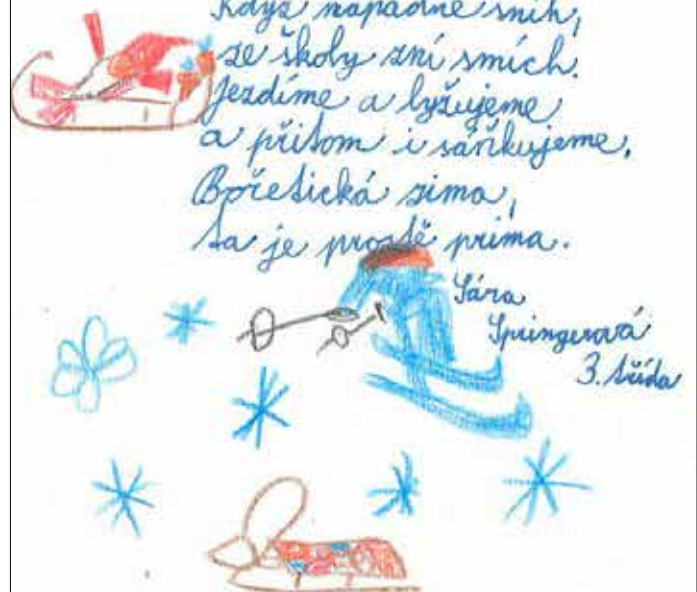 Když napadne sníh,
ze školy zní smích.
Jezdíme a lyžujeme
a přitom i sáňkujeme.
Bořetická zima,
ta je prostě prima.
Sára
Springerová
3. třída